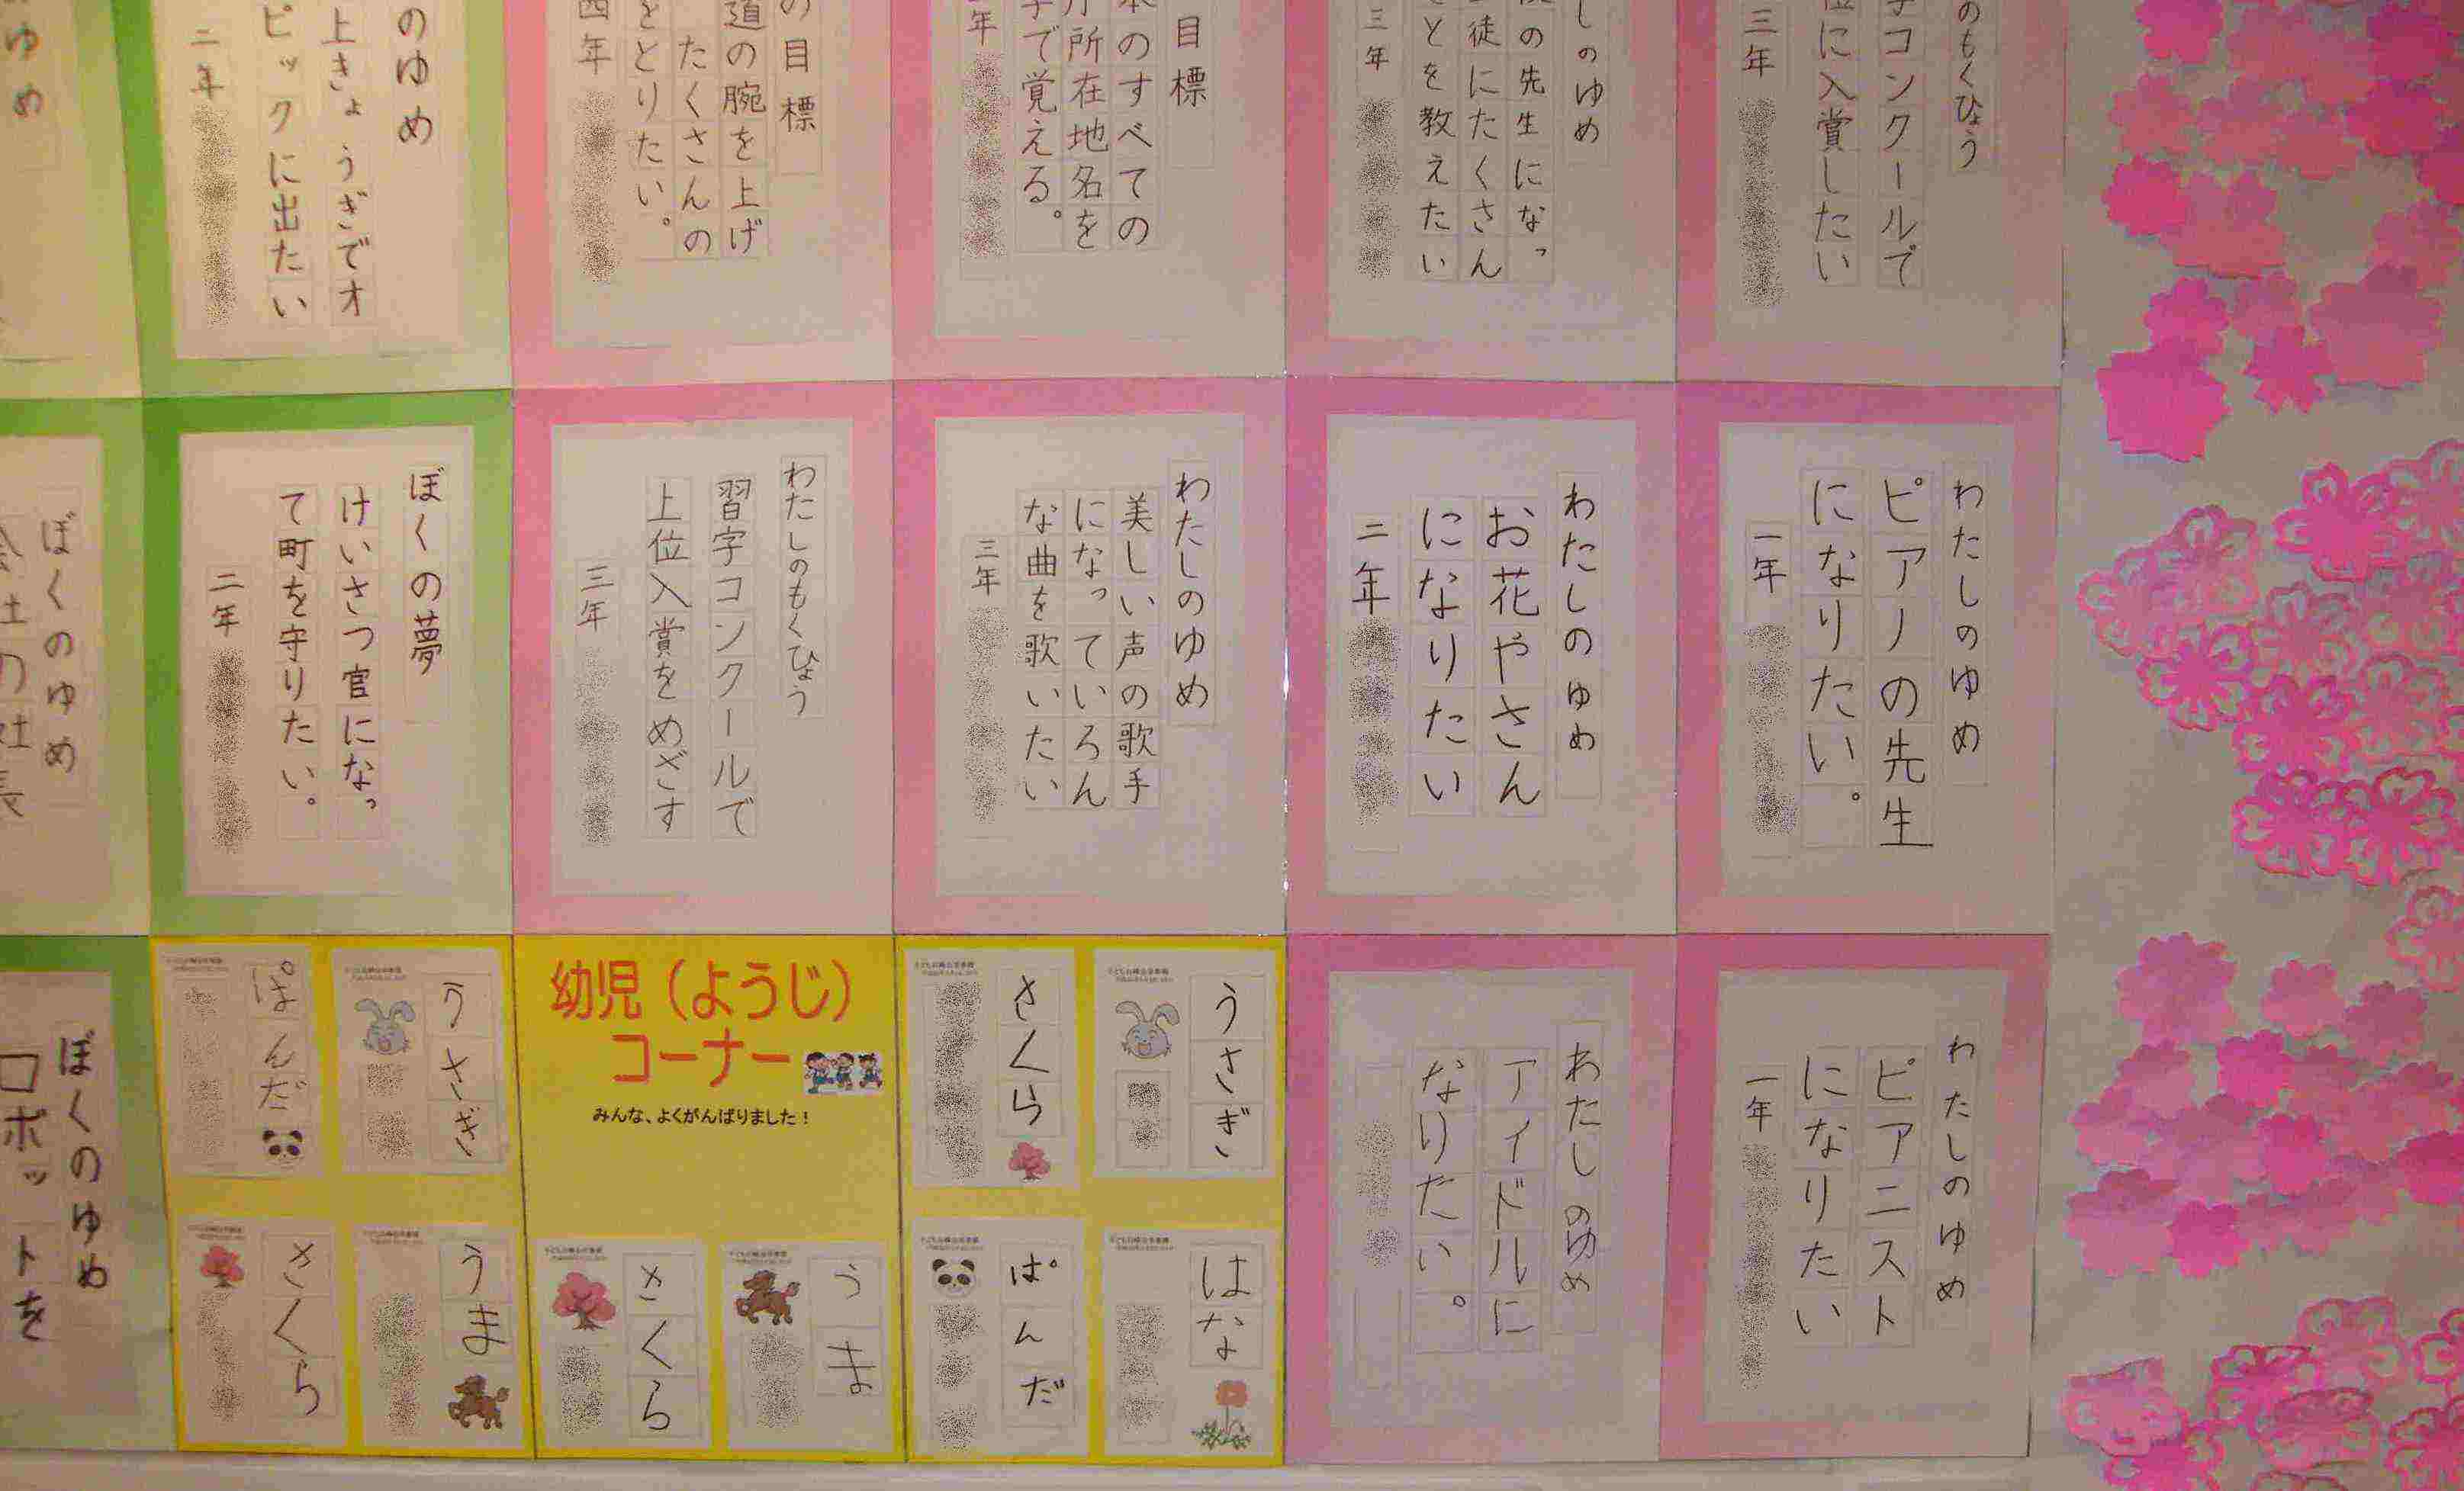 のゆめ
上きょうぎでオ
ピックに出たい
二年
の目標
道の腕を上げ
たくさんの
をとりたい。
四年
目標
本のすべての
庁所在地名を
字で覚える。
年
しのゆめ
の先生になっ
徒にたくさん
とを教えたい
三年
のもくひょう
字コンクールで
位に入賞したい
三年
ゆめ
わたしのゆめ
ピアノの先生
になりたい。
一年
わたしのゆめ
お花やさん
になりたい
二年
わたしのゆめ
美しい声の歌手
になっていろん
な曲を歌いたい
三年
わたしのもくひょう
習字コンクールで
上位入賞をめざす
三年
ぼくの夢
けいさつ官になっ
て町を守りたい。
二年
ぼくのゆめ
会社の社長
わたしのゆめ
ピアニスト
になりたい
一年
わたしのゆめ
アイドルに
なりたい。
うさぎ
さくら
はな
ぱんだ
幼児(ようじ)
コーナー
みんな、よくがんばりました!
うま
さくら
うさぎ
ぱんだ
うま
さくら
ぼくのゆめ
ロボットを